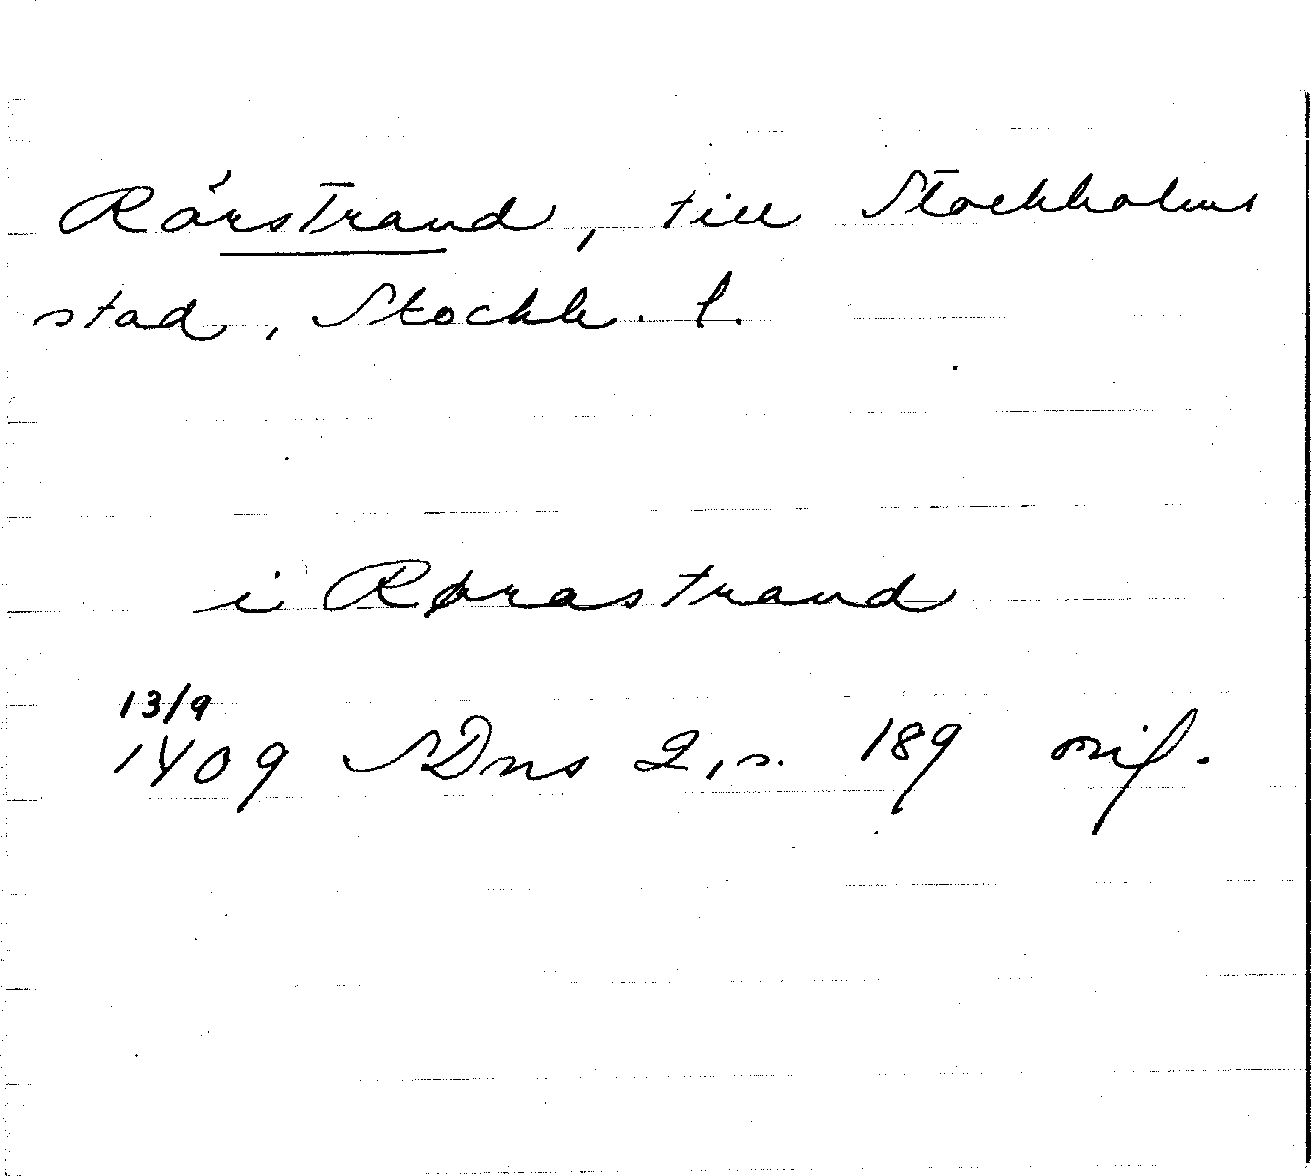 Rörstrand, till Stockholms
stad, Stockh. l.
i Rørastrand
13/9
1409 SDns 2, s. 189 nif.